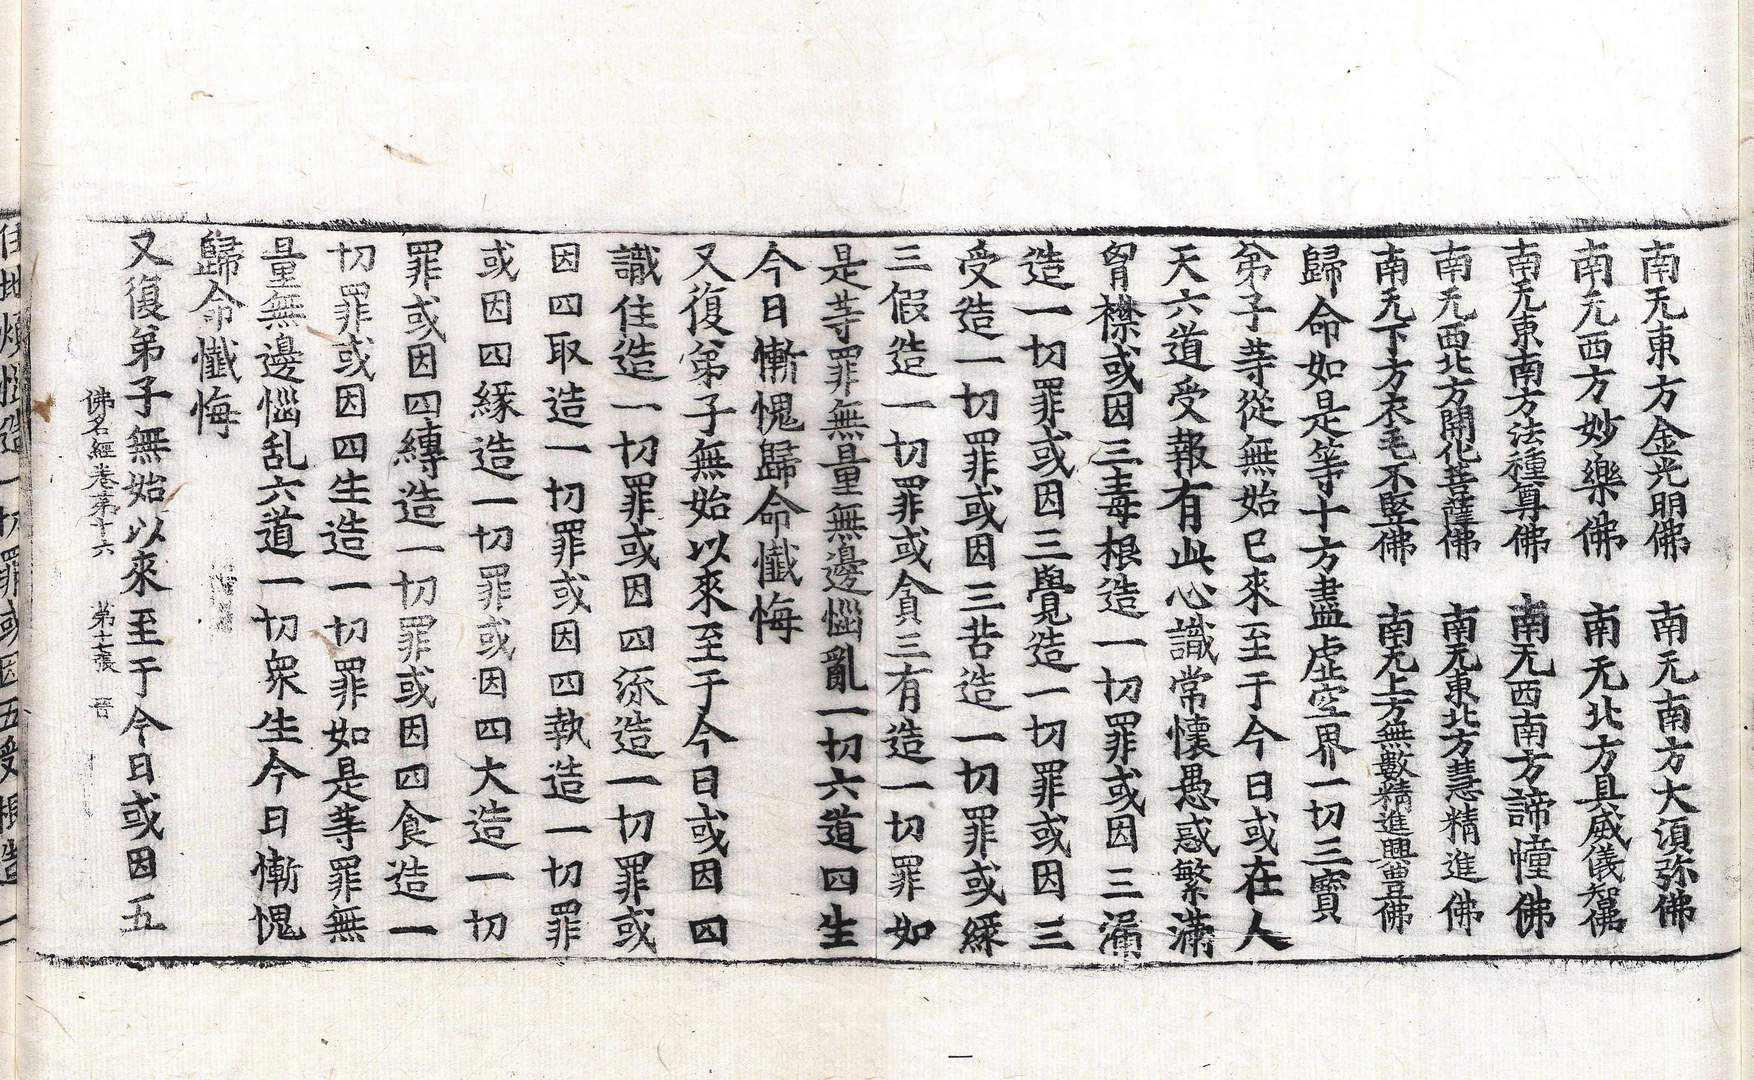 南无東方金光明佛　南无南方大湏弥佛
南无西方妙樂佛　南无北方具威儀智佛
南无東南方法種尊佛　南无西南方諦憧佛
南无西北方開化菩薩佛　南无東北方慧精進佛
南无下方衣毛不竪佛　南无上方無數精進興豊佛
歸命如是等十方盡虛空界一切三寶
弟子等從無始已來至于今日或在人
天六道受報有此心識常懷愚惑繁滿
胷襟或因三毒根造一切罪或因三漏
造一切罪或因三覺造一切罪或因三
受造一切罪或因三苦造一切罪或緣
三假造一切罪或貪三有造一切罪如
是等罪無量無邊惱亂一切六道四生
今日慚愧歸命懺悔
又復弟子無始以來至于今日或因四
識住造一切罪或因四流造一切罪或
因四取造一切罪或因四執造一切罪
或因四緣造一切罪或因四大造一切
罪或因四縛造一切罪或因四食造一
切罪或因四生造一切罪如是等罪無
量無邊惱乱六道一切衆生今日慚愧
歸命懺悔
又復弟子無始以來至于今日或因五
佛名經卷第十六　第十七張
住地煩惱造一切罪或因五受根造一